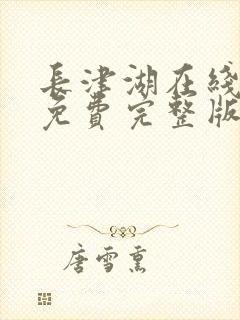 長津湖在綫
免費完整版
唐雪熏